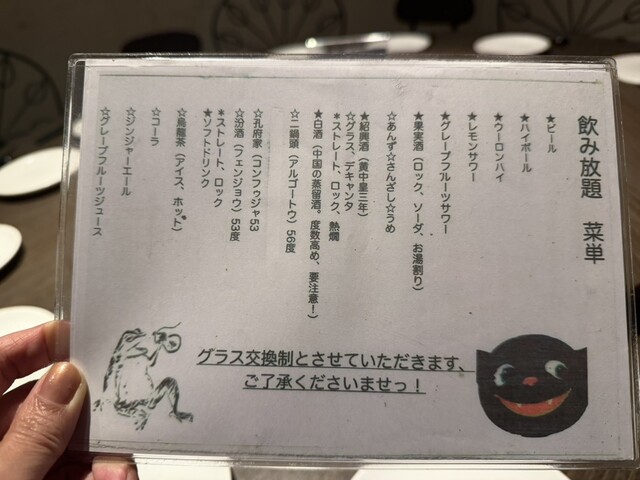 飲み放題　菜単
★ビール
★ハイボール
★ウーロンハイ
★レモンサワー
★グレープフルーツサワー
★果実酒（ロック、ソーダ、お湯割り）
☆あんず☆さんざし☆うめ
★紹興酒（黄中皇三年）
☆グラス、デキャンタ
*ストレート、ロック、熱燗
★白酒（中国の蒸留酒。度数高め、要注意！）
☆二鍋頭（アルゴートウ）56度
☆孔府家（コンフゥジャ53
☆汾酒（フェンジョウ）53度
*ストレート、ロック
★ソフトドリンク
☆烏龍茶（アイス、ホット）
☆コーラ
☆ジンジャーエール
☆グレープフルーツジュース
グラス交換制とさせていただきます、
ご了承くださいませっ！